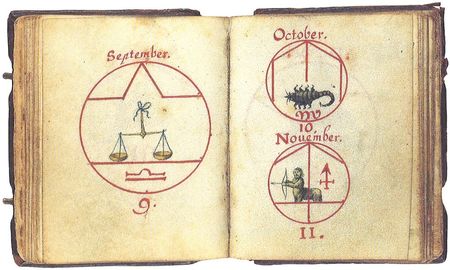 September.
9.
October.
10
November.
11.